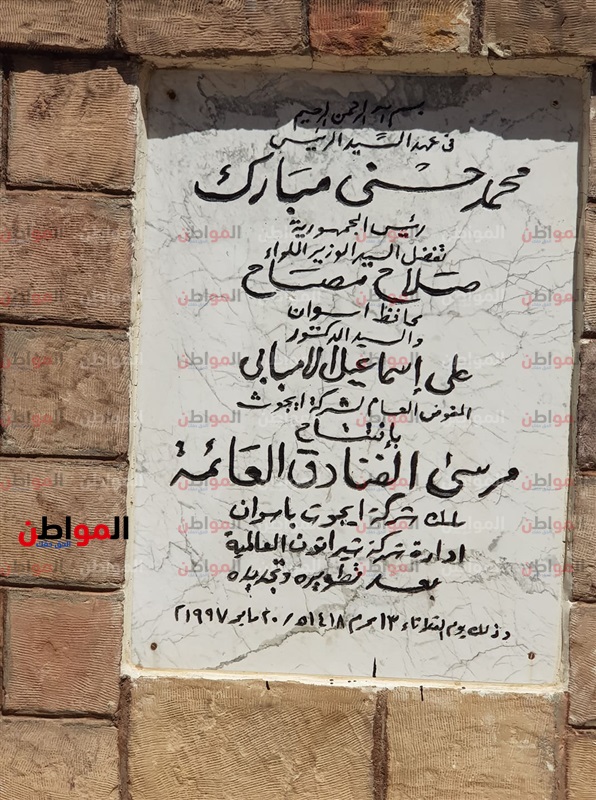 بسم الله الرحمن الرحيم
فى عهد السيد الرئيس
محمد حسنى مبارك
رئيس الجمهورية
تفضل السيد الوزير اللواء
صلاح مصباح
محافظ اسوان
والسيد الدكتور
على إسماعيل الامبابى
المفوض العام لشركة ايجوث
بإفتتاح
مرسى الفنادق العائمة
ملك شركة ايجوث باسوان
ادارة شركة شيراتون العالمية
بعد تطويره وتجديده
وذلك يوم الثلاثاء ١٣ محرم ١٤١٨ه / ٢٠ مايو ١٩٩٧م
المواطن